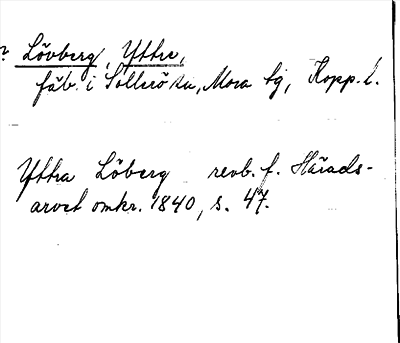 ? Lövberg, Yttre,
fäb. i Sollerö sn, Mora tg, Kopp. l.
Yttra Löberg revb. f. Härads-
arvet omkr. 1840, s. 47.